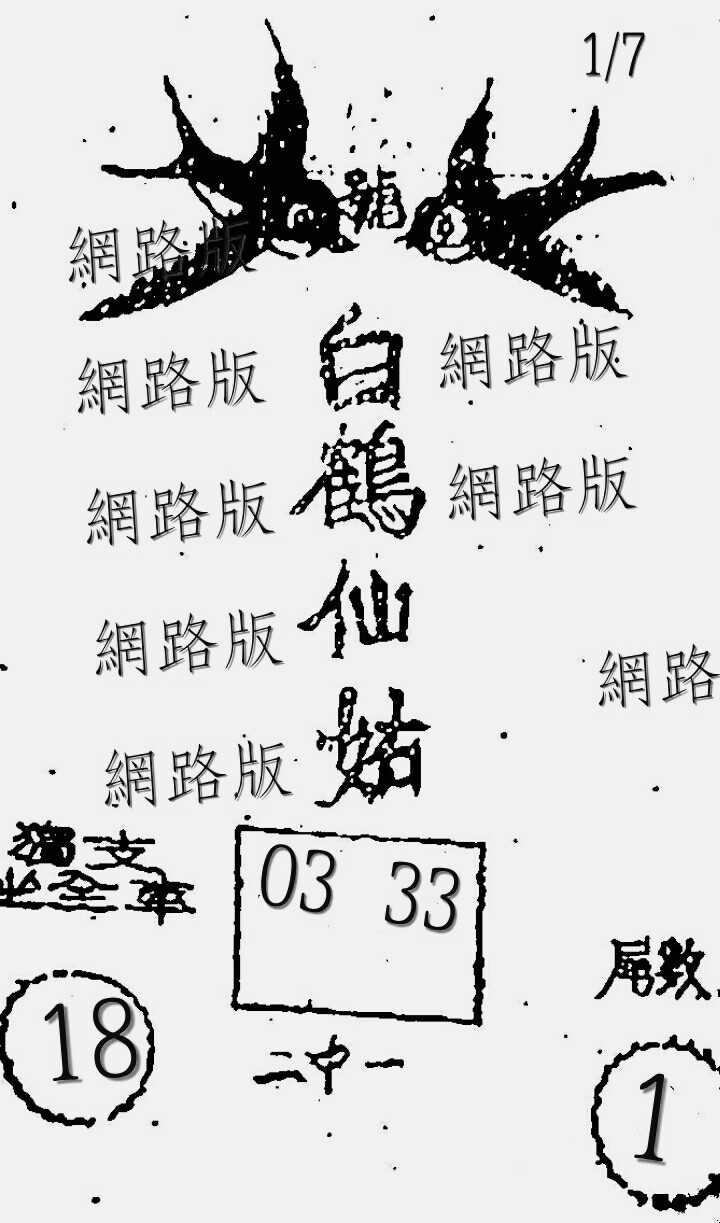 1/7
號
網路版
白鶴仙姑
網路版
網路版
網路版
網路版
網路版
網路
網路版
獨支
坐全車
03 33
二中一
18
尾數
1